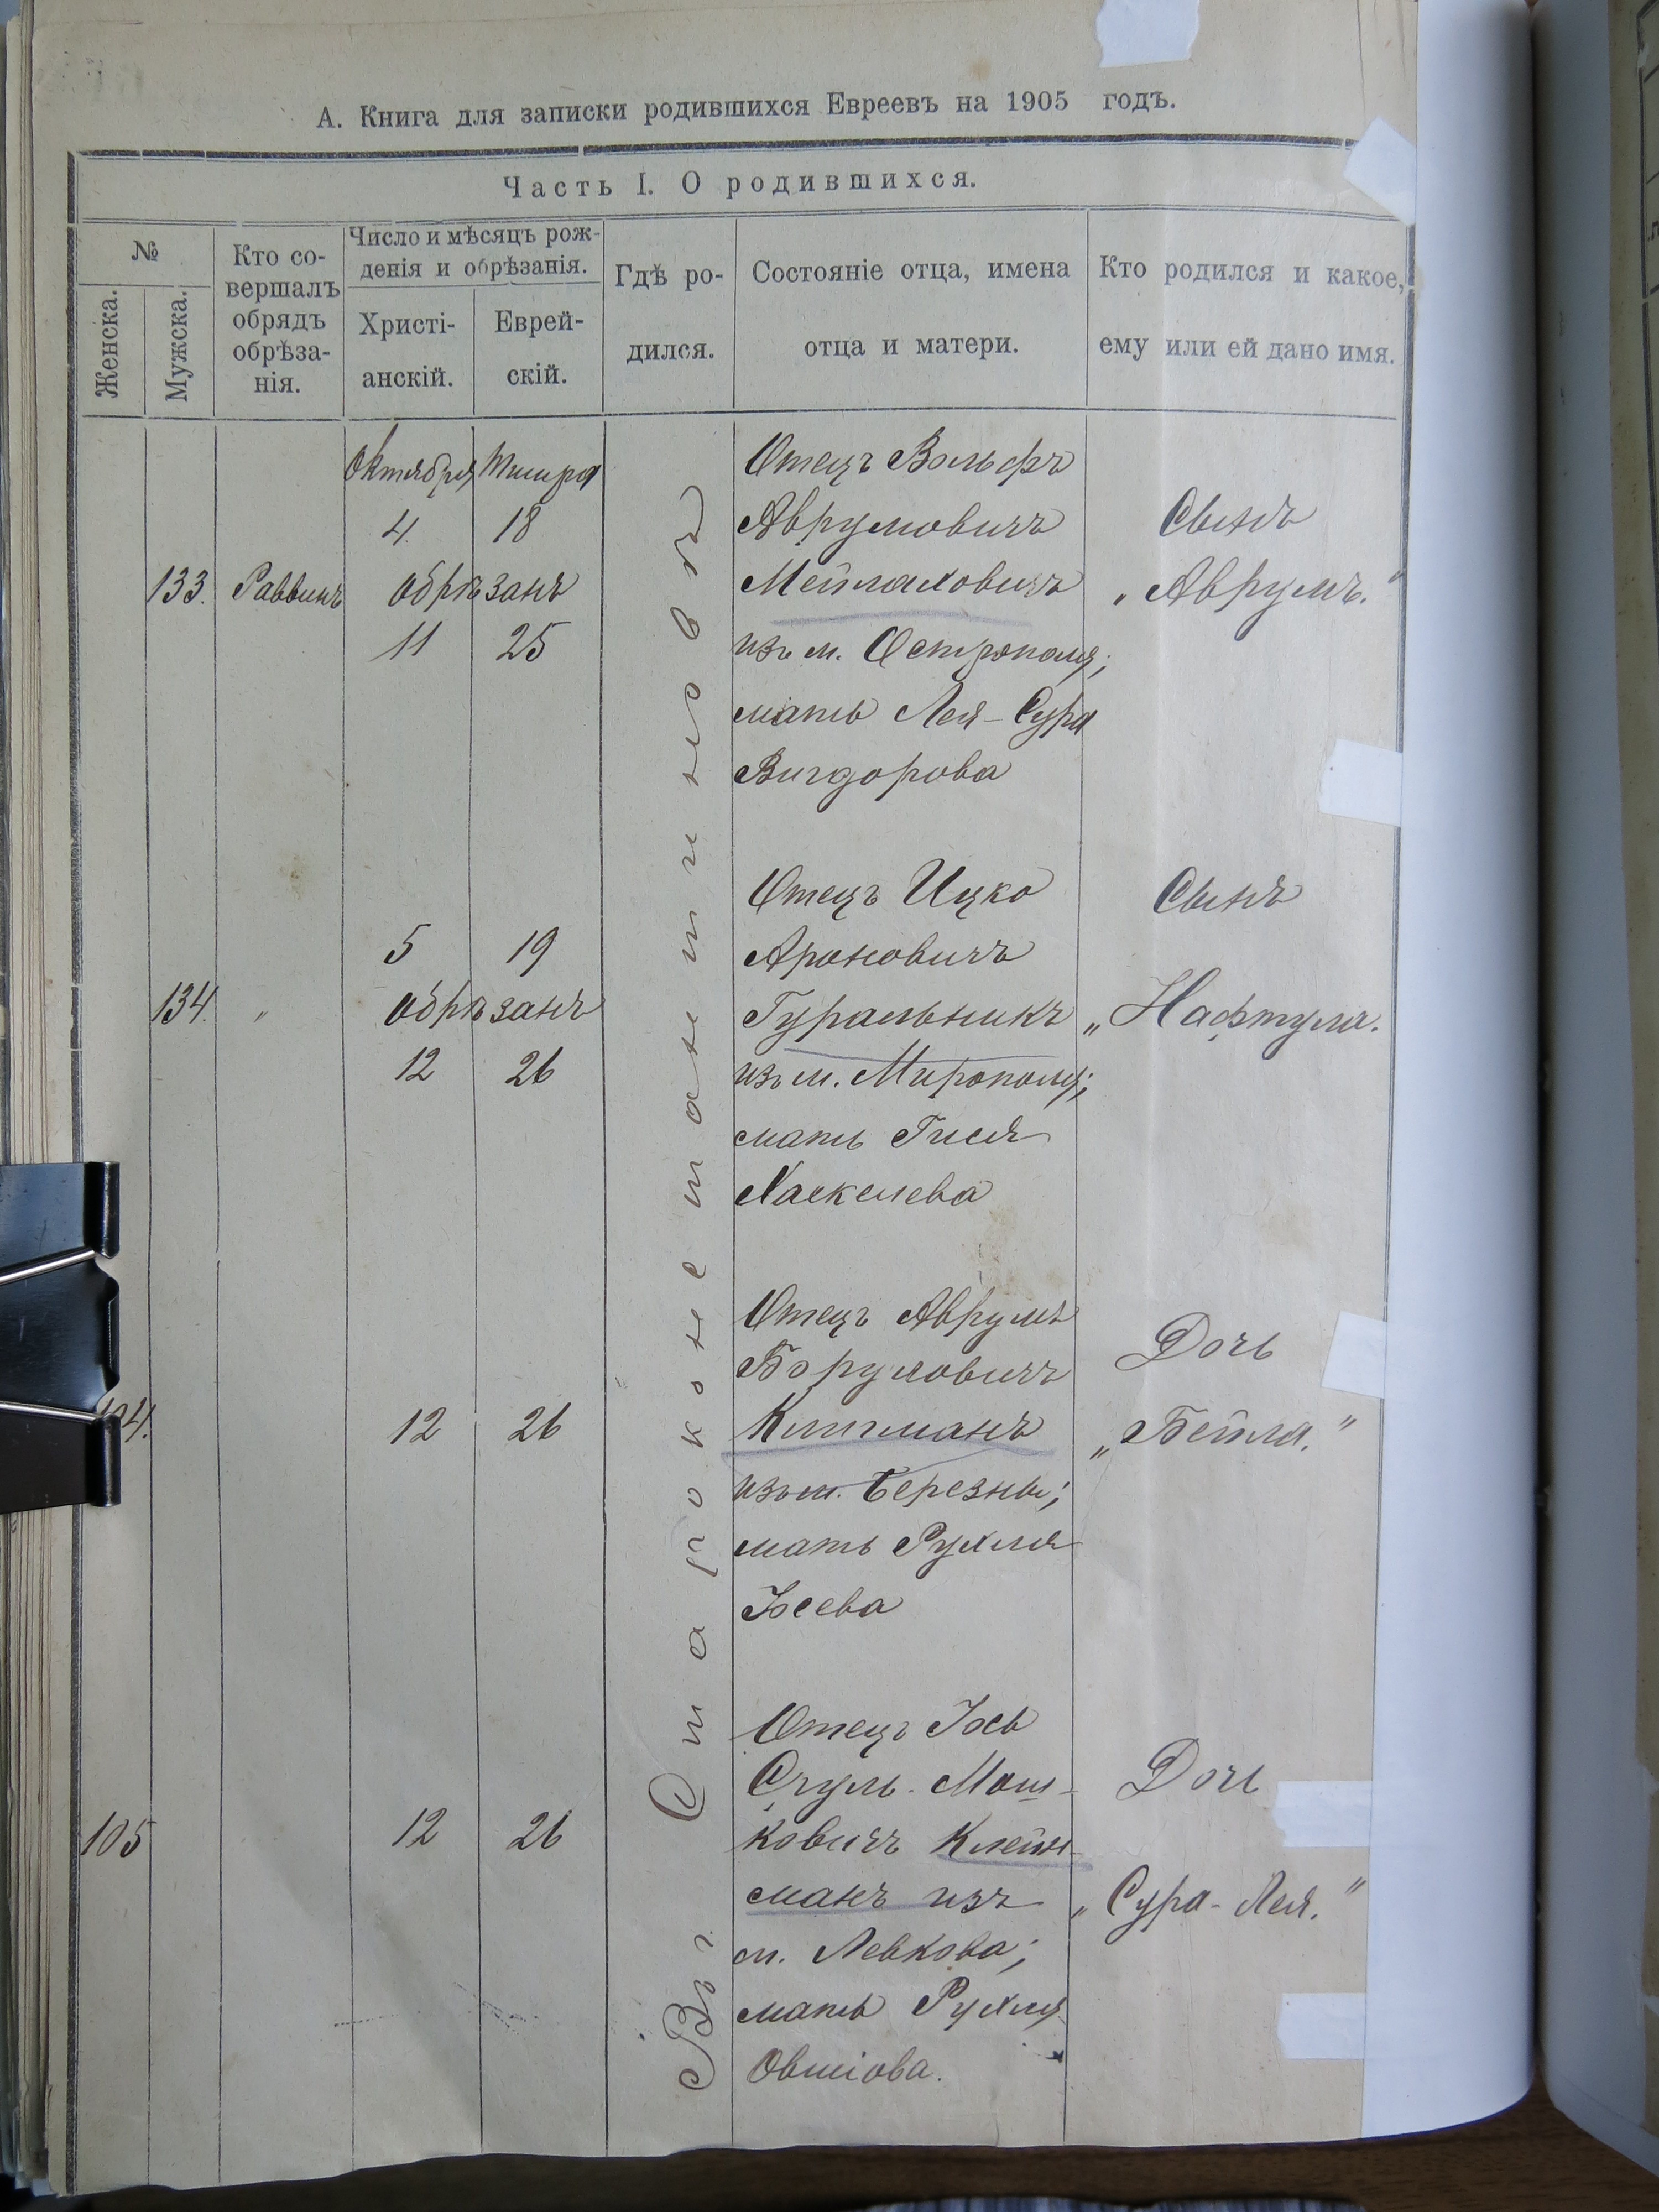 А. Книга для записки родившихся Евреевъ на 1905 годъ.
Часть I. О родившихся.
№
Женска.
Мужска.
Кто со-
вершалъ
обрядъ
обрѣза-
нія.
Число и мѣсяцъ рож-
денія и обрѣзанія.
Христі-
анскій.
Еврей-
скій.
Гдѣ ро-
дился.
Состояніе отца, имена
отца и матери.
Кто родился и какое,
ему или ей дано имя.
Въ г. Староконстантиновѣ
133.
Раввинъ
Октября Тишра
4 18
обрѣзанъ
11 25
Отецъ Вольфъ
Аврумовичъ
Мейлаховичъ
изъ м. Острополя;
мать Лея-Сура
Вигдорова
Сынъ
„Аврумъ."
134.
"
5 19
обрѣзанъ
12 26
Отецъ Ицко
Ароновичъ
Гуральникъ
изъ м. Мирополя;
мать Гися
Хаскелева
Сынъ
„Нафтула.
104.
12 26
Отецъ Аврумъ
Боруховичъ
Клигманъ
изъ м. Березны;
мать Рухля
Іосева
Дочь
„Бейла."
105
12 26
Отецъ Іось
Сруль Мош-
ковичъ Клейн-
манъ изъ
м. Левкова;
мать Рухля
Овшіова.
Дочь
„Сура-Лея."